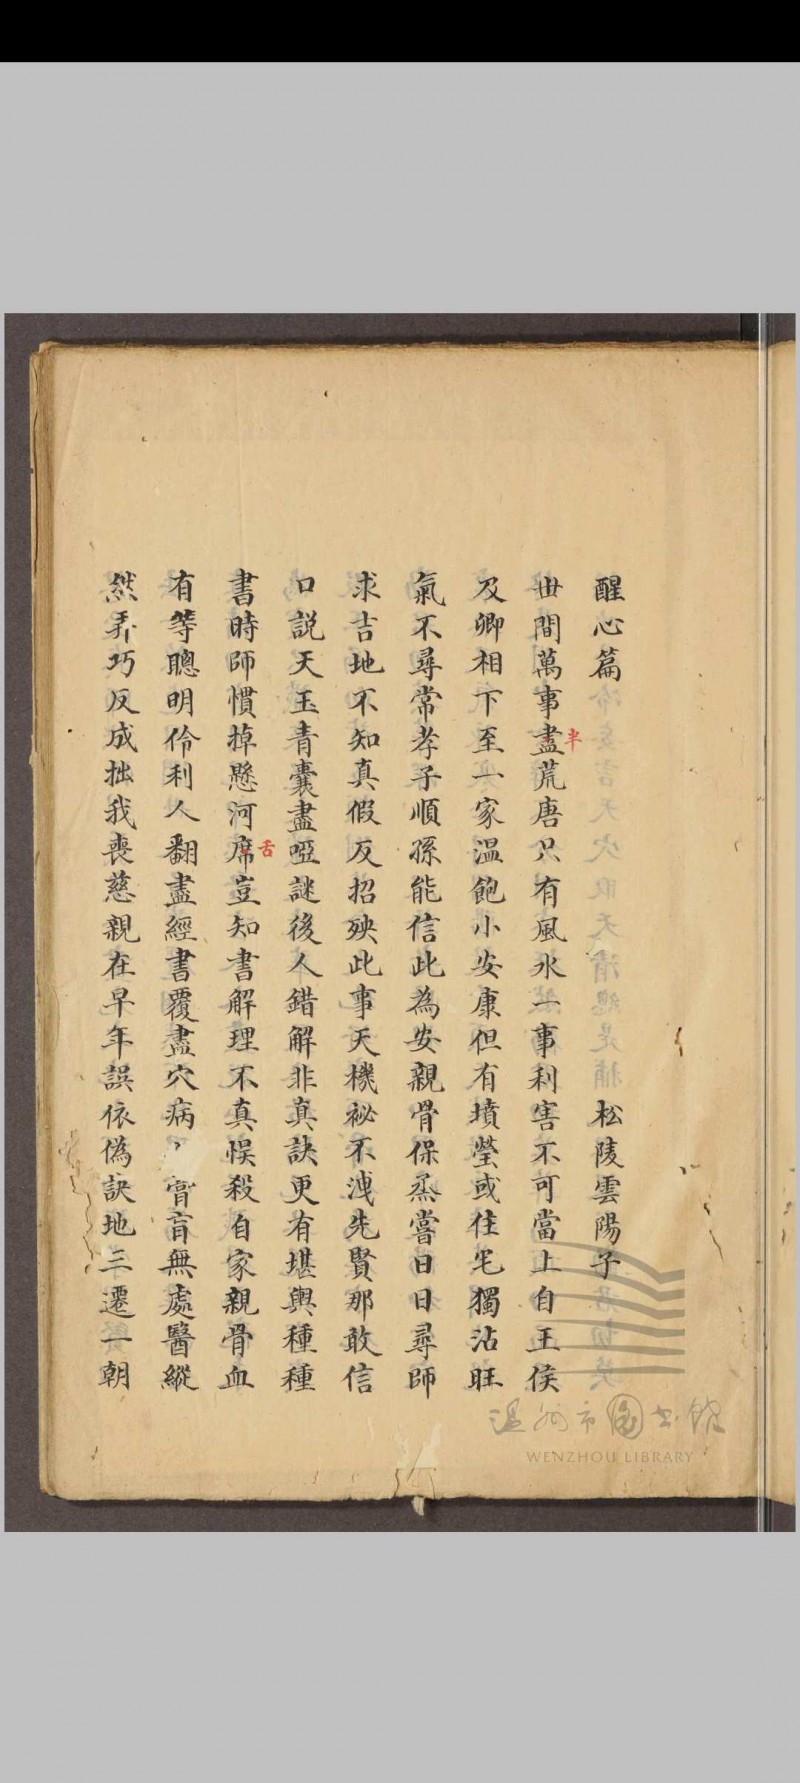 醒心篇　松陵雲陽子
世間萬事盡荒唐只有風水一事利害不可當上自王侯
半
及卿相下至一家溫飽小安康但有墳塋或住宅獨沾旺
氣不尋常孝子順孫能信此為安親骨保烝嘗日日尋師
求吉地不知真假反招殃此事天機祕不洩先賢那敢信
口說天玉青囊盡啞謎後人錯解非真訣更有堪輿種種
書時師慣掉懸河席豈知書解理不真悞殺自家親骨血
舌
有等聰明伶利人翻盡經書覆盡穴病膏肓無處醫縱
然弄巧反成拙我喪慈親在早年誤依偽訣地三遷一朝
溫州市圖書館
WENZHOU LIBRARY